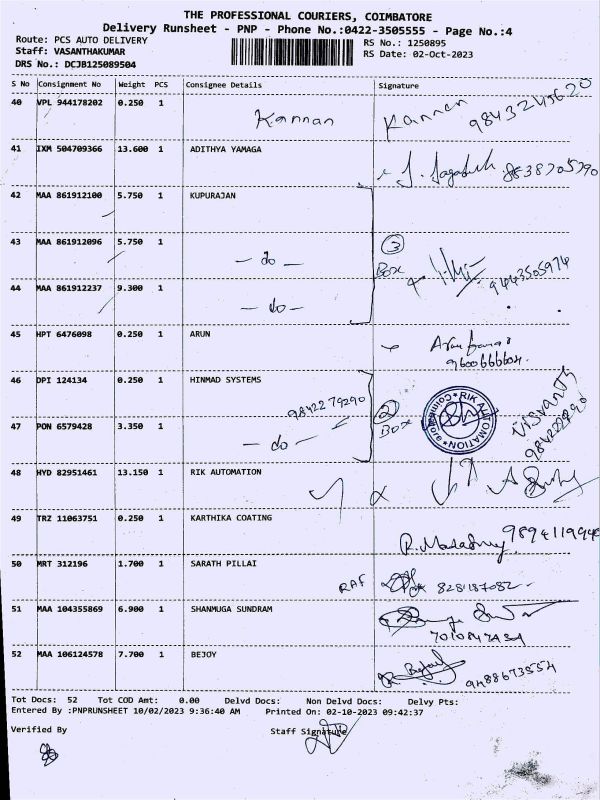 THE PROFESSIONAL COURIERS, COIMBATORE
Delivery Runsheet - PNP - Phone No.:0422-3505555 - Page No.:4
Route: PCS AUTO DELIVERY
RS No.: 1250895
Staff: VASANTHAKUMAR
RS Date: 02-Oct-2023
DRS No.: DCJB125089504
S No Consignment No Weight PCS Consignee Details Signature
40 VPL 944178202 0.250 1 Kannan Kannan 9843245620
41 IXM 504709366 13.600 1 ADITHYA YAMAGA
42 MAA 861912100 5.750 1 KUPURAJAN
43 MAA 861912096 5.750 1 - do - 3 Box 9443505974
44 MAA 861912237 9.300 1 - do -
45 HPT 6476098 0.250 1 ARUN Arun kumar
9600666604
46 DPI 124134 0.250 1 HINMAD SYSTEMS
9842279290
47 PON 6579428 3.350 1 - do - 2 Box RIK AUTOMATION Coimbatore
48 HYD 82951461 13.150 1 RIK AUTOMATION
49 TRZ 11063751 0.250 1 KARTHIKA COATING
50 MRT 312196 1.700 1 SARATH PILLAI 8281187082
51 MAA 104355869 6.900 1 SHANMUGA SUNDRAM
52 MAA 106124578 7.700 1 BEJOY 9488673554
Tot Docs: 52 Tot COD Amt: 0.00 Delvd Docs: Non Delvd Docs: Delvy Pts:
Entered By :PNPRUNSHEET 10/02/2023 9:36:40 AM Printed On: 02-10-2023 09:42:37
Verified By Staff Signature